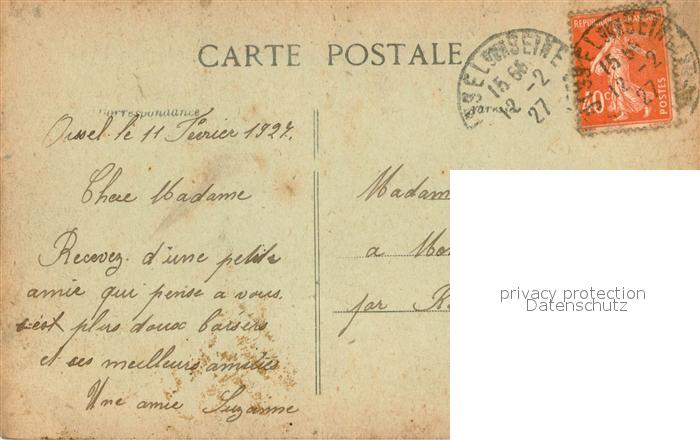 CARTE POSTALE
Correspondance
Oissel le 11 Février 1927.
Chere Madame
Recevez d'une petite
amie qui pense a vous.
plus doux baisers
et ses meilleurs amitiés
Une amie Suzanne
Madam
a Mon
par
15 
12 -2
27
REPUBLIQUE FRANÇAISE
40c
POSTES
15
12 -2
27
privacy protection
Datenschutz